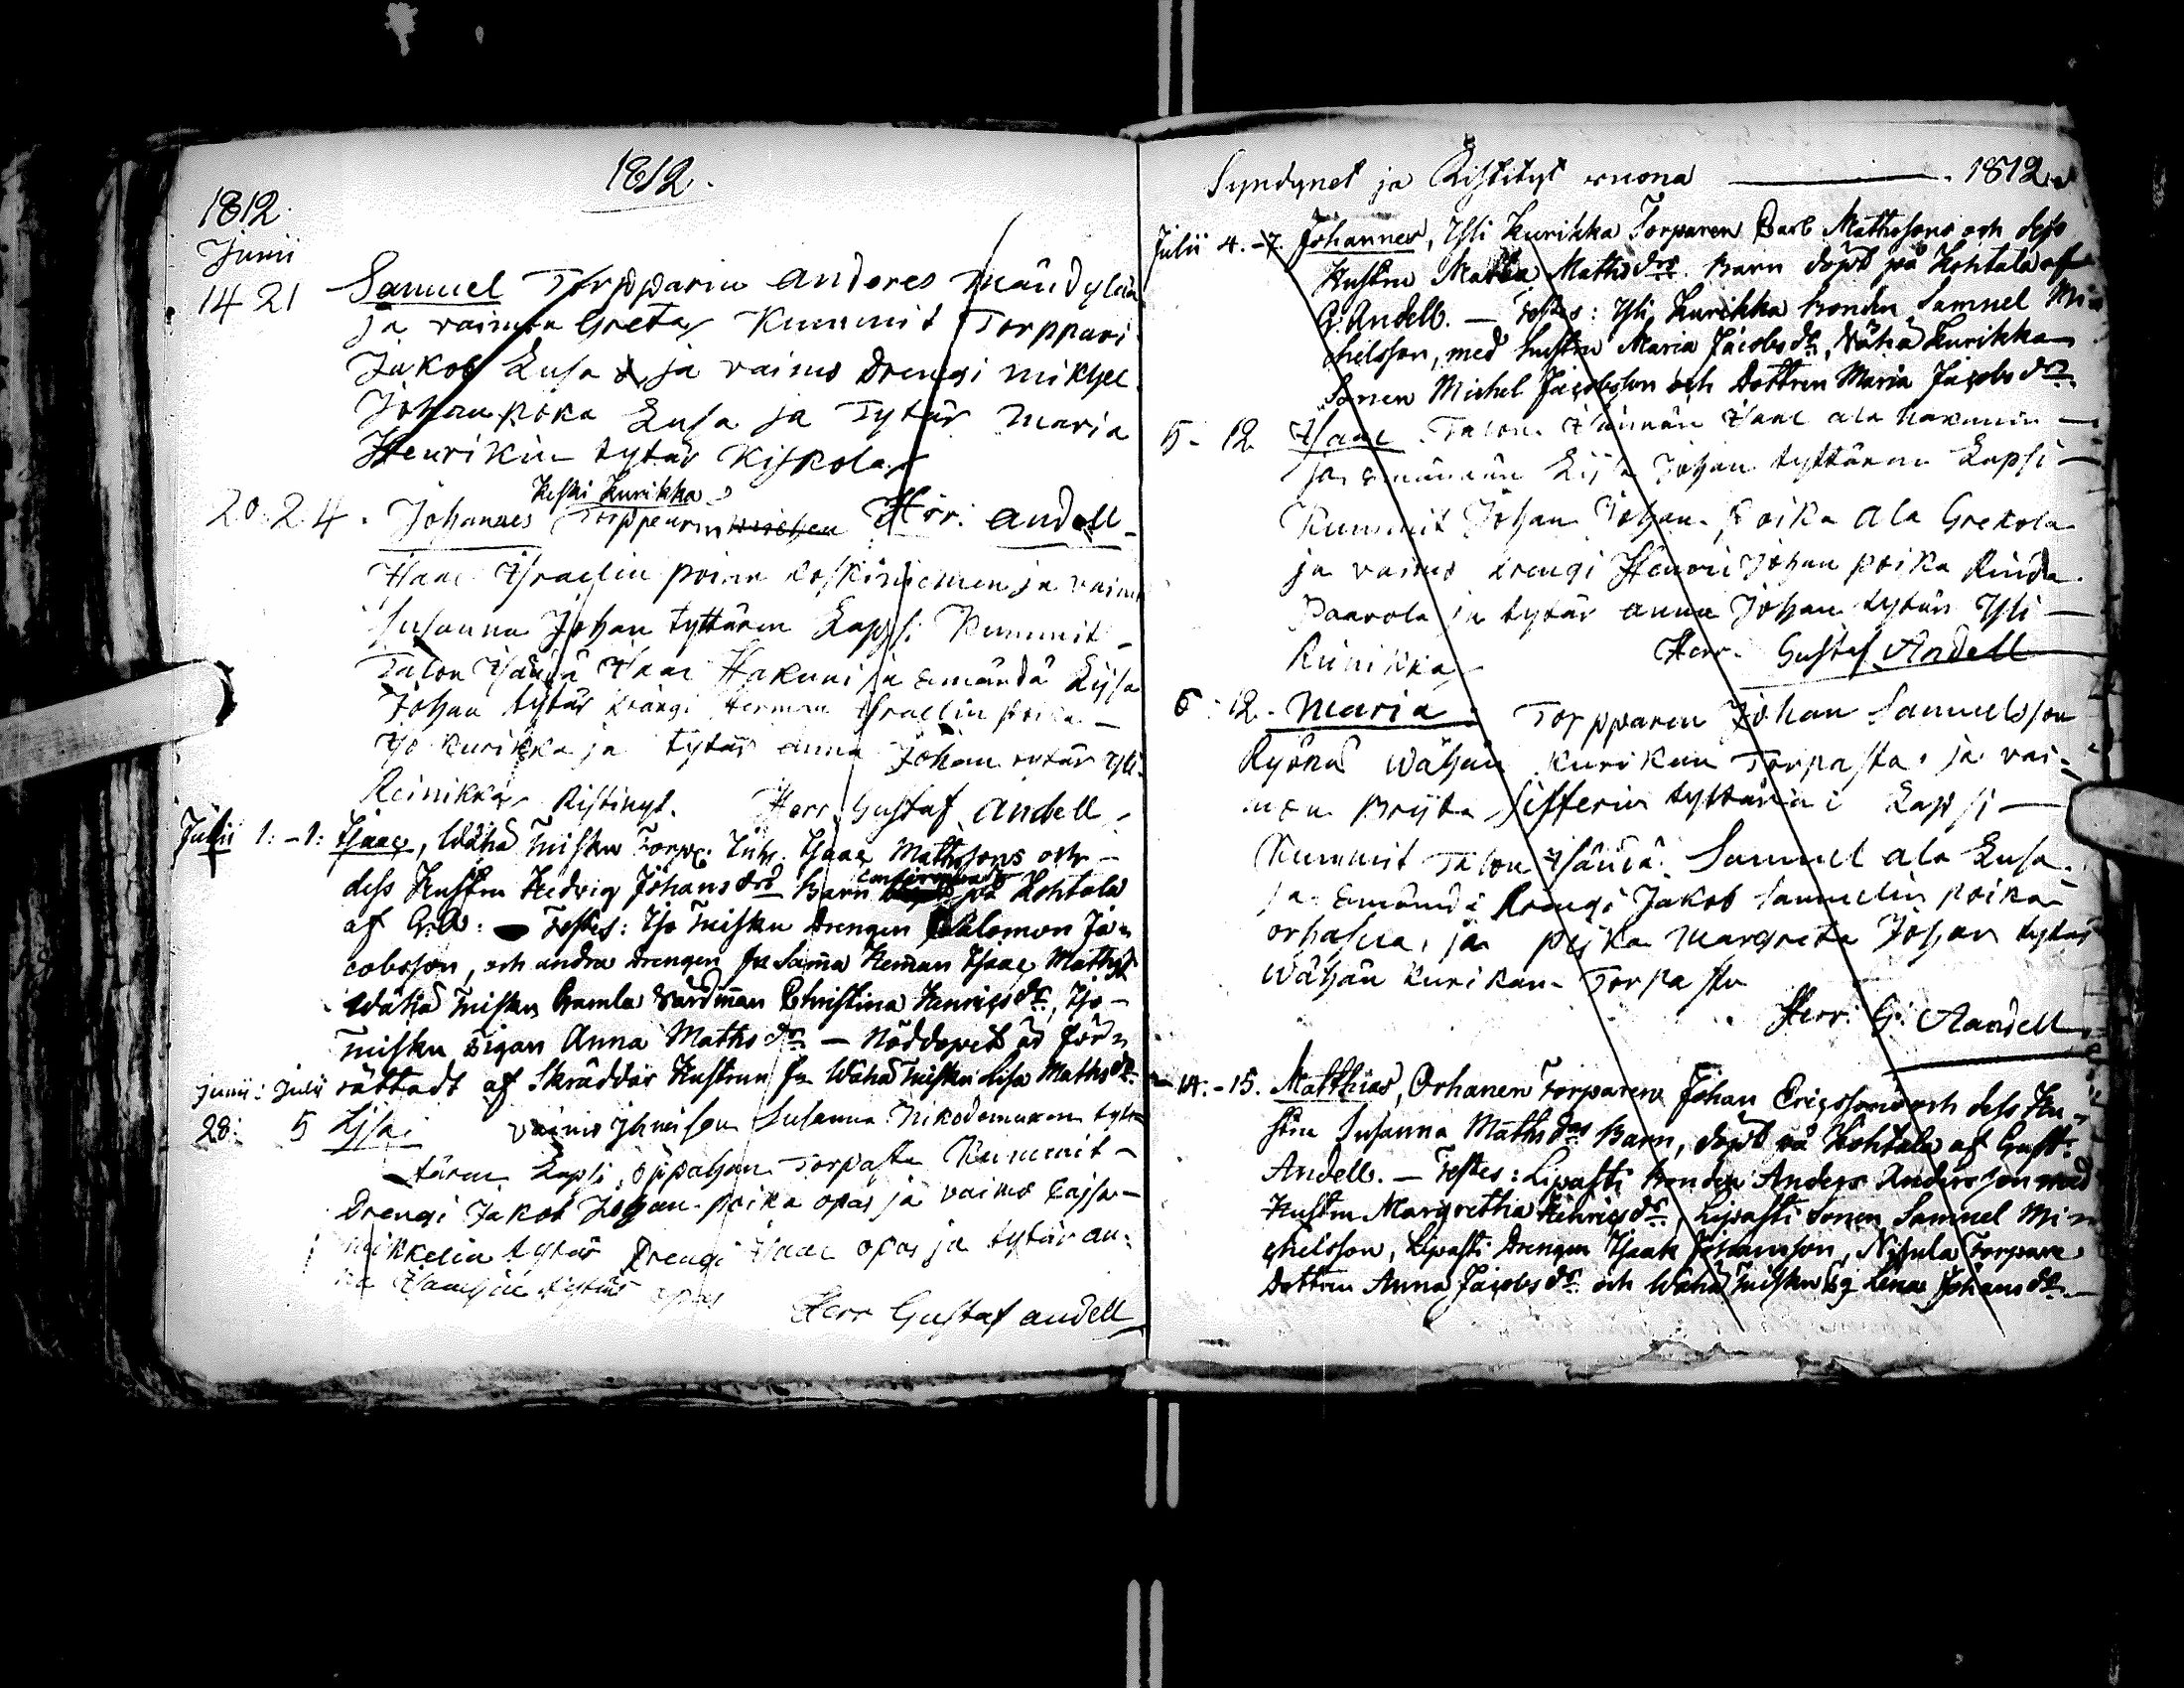 1812.
1812
Junii
14 21 Samuel Torpparin anderes mändylän
ja vaimon Greta Kummit Torppari
Jakob Lusa ja vaimo Drengi mikhel
Johan poka Lusa ja Tytär Maria
Henrikin tytär Kiskola
Keski Kurikka
20. 24. Johannes Torppenrin Herr: andell
Isaac Israelin poian koskiniemen ja vaimo
Susanna Johan tyttären Lapsi Kummit
Talon Isändä Isaac Hakuni ja Emändä Lijsa
Johan tytär drängi Herman Israelin poika
Iso Kurikka ja tytär anna Johan tytär Yli
Reinikka Ristinyt. Herr Gustaf andell
Julii 1: -1: Isaac, Wähä Misku Torp: Inh: Isaac Mathssons och
dess Hustru Hedvig Johans drs Barn på Kohtala
af G.A: Testes: Iso Misku Drengen Salomon Ja=
cobsson, och andra drengen fr Sama Heman Isaac Maths
Wähä Misku Gamla Värdinnan Christina Henrics dr, Iso
Misku Pigan Anna Maths dr – Nöddopet är för=
rättadt af Skräddar Hustrun fr Wähä Misku Lisa Maths dr
Junii: Julii
28: 5 Lisa vaimo Susanna Nikodemuxen tyt
tären Lapsi, Torpasta Kummit
Drengi Jakob Johan poika opas ja vaimo Cajsa
mikkelin tytär Drengi Isaac opas ja tytär an=
na tytär opas
Herr Gustaf andell
Syndynet ja Ristityt vuona 1812
Julii 4. -7. Johannes, Yli Kurikka Torparen Carl Mathssons och dess
Hustru Maria Maths drs Barn döpt på Kohtala af
G. Andell. – Testes: Yli Kurikka Bonden Samuel Mi
chelsson, med hustru Maria Jacobs dr, Wähä Kurikka
Sonen Michel Jacobsson och Dottren Maria Jacobs dr
5 - 12 Isaac Talon Isännän Isaac ala Hakunin
ja Emännän Lijsa Johan tyttären Lapsi
Kummit Johan Johan Poika ala Grekola
ja vaimo drengi Henri Johan poika Rinda
Paavola ja tytär anna Johan tytär Yli
Reinikka Herr. Gustaf Andell
6: 12. Maria: Torpparen Johan Samuelsson
Ryönä Wähän kurikan Torpasta. ja vai=
mon Brijta Sifferin tyttären Lapsi
Kummit Talon Isändä Samuel ala Lusa.
ja Emändä Drengi Jakob Samuelin poika
orhasha, ja pijka Margreta Johan tytär
Wähän kurikan Torpasta
Herr: G: Aandell
14. -15. Matthias, Orhanen Torparen Johan Ericssons och dess Hu=
stru Susanna Maths drs Barn, döpt på Kohtala af Gust:
Andell. – Testes: Lipasti Bonden Anders Andersson med
Hustru Margretha Henrics dr, Lipasti Sonen Samuel Mi=
chelsson, Lipasti Drengen Isaak Johansson, Nisula Torpare
Dottren Anna Jacobs dr och Wähä Misku Pig Lena Johans dr